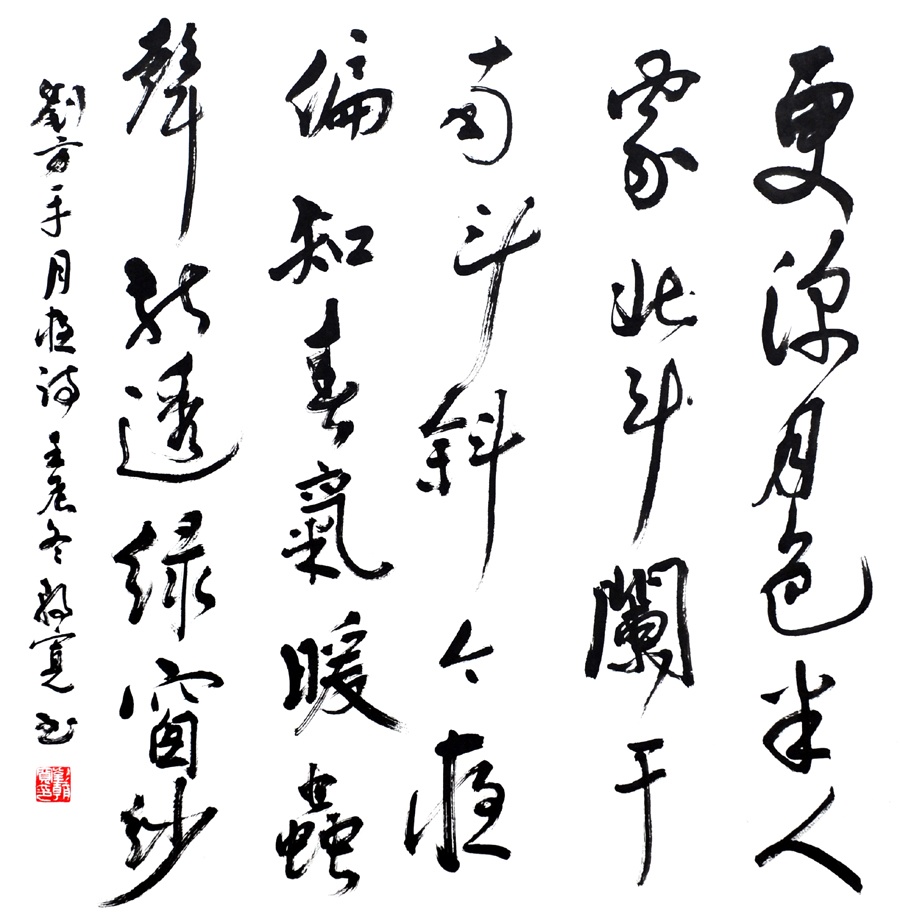 更深月色半人
家北斗闌干
南斗斜今夜
偏知春氣暖蟲
聲新透綠窗紗
劉方平月夜詩壬辰冬寬書